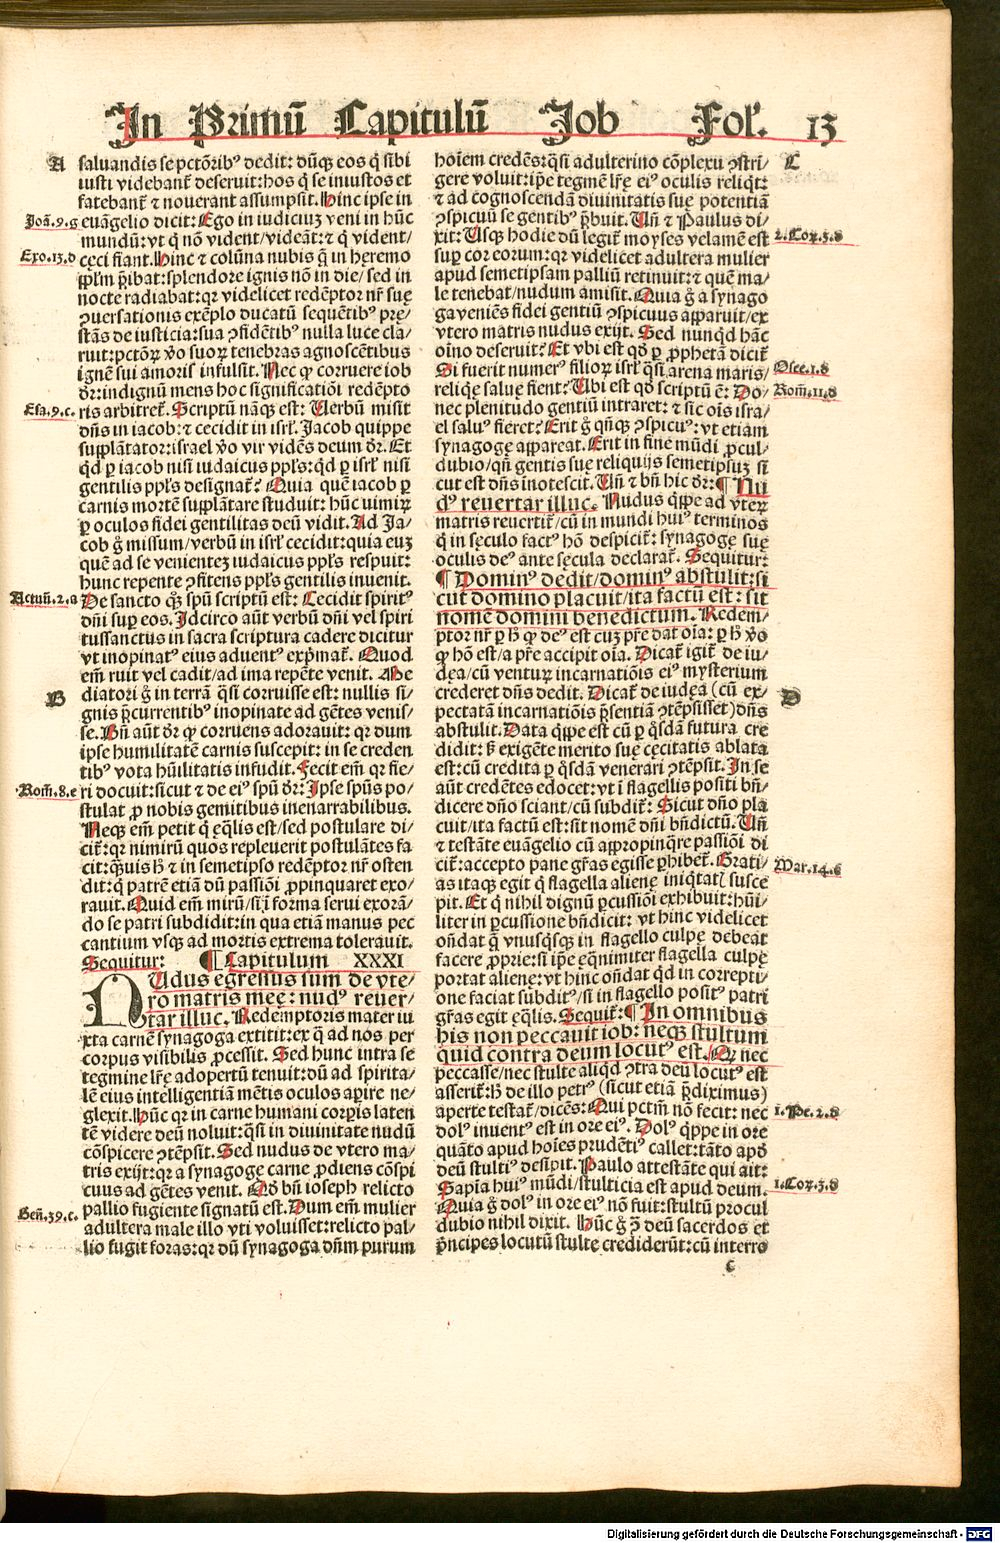 In Primū Capitulū Job Fol. 13
A
saluandis se pctōribꝰ dedit: dūqꝫ eos q̇ sibi
iusti videbant̄ deseruit: hos q̇ se iniustos et
fatebant̄ ⁊ nouerant assumpsit. Hinc ipse in
Joā.9.g
euāgelio dicit: Ego in iudiciuꝫ veni in hūc
mundū: vt q̇ nō vident/videāt: ⁊ q̇ vident/
Exo.13.d
cęci fiant. Hinc ⁊ colūna nubis q̄ in heremo
pp̄lm p̄ibat: splendore ignis nō in die/sed in
nocte radiabat: qꝛ videlicet redēptor nr̄ suę
ↄuersationis exēplo ducatū sequētibꝰ prę-
stās de iusticia: sua ↄfidētibꝰ nulla luce cla/
ruit: pctōꝝ v̄o suoꝝ tenebras agnoscētibus
ignē sui amoris infulsit. Nec ꝙ corruere iob
dr̄: indignū mens hoc significatiōi redēpto
Esa.9.c.
ris arbitret̄. Scriptū nāqꝫ est: Uerbū misit
dn̄s in iacob: ⁊ cecidit in isrl̄. Jacob quippe
supplātator: israel v̄o vir vidēs deum dr̄. Et
qd̄ ꝑ iacob nisi iudaicus ppl̄s: qd̄ ꝑ isrl̄ nisi
gentilis ppl̄s designat̄? Quia quē iacob ꝑ
carnis mortē supplātare studuit: hūc nimiꝝ
ꝑ oculos fidei gentilitas deū vidit. Ad Ja/
cob g̊ missum/verbū in isrl̄ cecidit: quia euꝫ
quē ad se venienteꝫ iudaicus ppl̄s respuit:
hunc repente ↄfitens ppl̄s gentilis inuenit.
Actuū.2.a
De sancto qꝫ spū scriptū est: Cecidit spiritꝰ
dn̄i suꝑ eos. Idcirco aūt verbū dn̄i vel spiri
tussanctus in sacra scriptura cadere dicitur
vt inopinatꝰ eius aduentꝰ exp̄mat̄. Quod
em̄ ruit vel cadit/ad ima repēte venit. Me
B
diatori g̊ in terrā q̄si corruisse est: nullis si/
gnis p̄currentibꝰ inopinate ad gētes venis/
se. Bn̄ aūt dr̄ ꝙ corruens adorauit: qꝛ dum
ipse humilitatē carnis suscepit: in se creden
tibꝰ vota hūilitatis infudit. Fecit em̄ qꝛ fie/
Rom̄.8.e
ri docuit: sicut ⁊ de eiꝰ spū dr̄: Ipse spūs po/
stulat ꝓ nobis gemitibus inenarrabilibus.
Neqꝫ em̄ petit q̇ eq̄lis est/sed postulare di/
cit̄: qꝛ nimirū quos repleuerit postulātes fa
cit: q̄uis hꝭ ⁊ in semetipso redēptor nr̄ osten
dit: q̇ patrē etiā dū passiōi ꝓpinquaret exo/
rauit. Quid em̄ mirū/si ī forma serui exorā/
do se patri subdidit: in qua etiā manus pec
cantium vsqꝫ ad mortis extrema tolerauit.
Sequitur: ¶ Capitulum XXXI
NUdus egressus sum de vte/
ro matris meę: nudꝰ reuer/
tar illuc. Redēptoris mater iu
xta carnē synagoga extitit: ex q̄ ad nos per
corpus visibilis ꝓcessit. Sed hunc intra se
tegmine lr̄ę adopertū tenuit: dū ad spirita/
lē eius intelligentiā mētis oculos aꝑire ne/
glexit. Hūc qꝛ in carne humani corꝑis laten
tē videre deū noluit: q̄si in diuinitate nudū
cōspicere ↄtēpsit. Sed nudus de vtero ma/
tris exijt: qꝛ a synagogę carne ꝓdiens cōspi
cuus ad gētes venit. Qd̄ bn̄ ioseph relicto
Gen̄.39.c.
pallio fugiente signatū est. Dum em̄ mulier
adultera male illo vti voluisset: relicto pal/
lio fugit foras: qꝛ dū synagoga dn̄m purum
C
hoīem credēs: q̄si adulterino cōplexu ↄstri/
gere voluit: ip̄e tegmē lr̄ę eiꝰ oculis reliq̇t:
⁊ ad cognoscendā diuinitatis suę potentiā
ↄspicuū se gentibꝰ p̄buit. Un̄ ⁊ Paulus di/
2.Coꝝ.3.d
xit: Usqꝫ hodie dū legit̄ moyses velamē est
suꝑ cor eorum: qꝛ videlicet adultera mulier
apud semetipsam palliū retinuit: ⁊ quē ma/
le tenebat/nudum amisit. Quia g̊ a synago
ga veniēs fidei gentiū ↄspicuus apparuit/ex
vtero matris nudus exijt. Sed nunqd̄ hāc
oīno deseruit? Et vbi est qd̄ ꝑ ꝓphetā dicit̄
Osee.1.d
Si fuerit numerꝰ filioꝝ isrl̄ q̄si arena maris/
reliqę saluę fient? Ubi est qd̄ scriptū ē: Do/
Rom̄.11.d
nec plenitudo gentiū intraret: ⁊ sic oīs isra/
el saluꝰ fieret? Erit g̊ qn̄qꝫ ↄspicuꝰ: vt etiam
synagogę appareat. Erit in fine mūdi ꝓcul/
dubio/qn̄ gentis suę reliquijs semetipsuꝫ si
cut est dn̄s inotescit. Un̄ ⁊ bn̄ hic dr̄: ¶ Nu
dꝰ reuertar illuc. Nudus q̄ppe ad vteꝝ
matris reuertit̄/cū in mundi huiꝰ terminos
q̇ in sęculo factꝰ hō despicit̄: synagogę suę
oculis deꝰ ante sęcula declarat̄. Sequitur:
¶ Dominꝰ dedit/dominꝰ abstulit: si
cut domino placuit/ita factū est: sit
nomē domini benedictum. Redem/
ptor nr̄ ꝑ hꝭ ꝙ deꝰ est cuꝫ pr̄e dat oīa: ꝑ hꝭ v̄o
ꝙ hō est/a pr̄e accipit oīa. Dicat̄ igit̄ de iu/
dęa/cū venturꝫ incarnatiōis eiꝰ mysterium
crederet dn̄s dedit. Dicat̄ de iudęa (cū ex/
D
pectatā incarnatiōis p̄sentiā ↄtēpsisset) dn̄s
abstulit. Data q̄ppe est cū ꝑ q̄sdā futura cre
didit: s̄ exigēte merito suę cęcitatis ablata
est: cū credita ꝑ q̄sdā venerari ↄtēpsit. In se
aūt credētes edocet: vt i flagellis positi bn̄/
dicere dn̄o sciant/cū subdit̄: Sicut dn̄o pla
cuit/ita factū est: sit nomē dn̄i bn̄dictū. Un̄
⁊ testāte euāgelio cū appropinq̄re passiōi di
cit̄: accepto pane gr̄as egisse ꝑhibet̄. Grati/
Mar.14.b
as itaqꝫ egit q̇ flagella alienę iniq̇tatꝭ susce
pit. Et q̇ nihil dignū ꝑcussiōi exhibuit: hūi/
liter in ꝑcussione bn̄dicit: vt hinc videlicet
ondat q̇ vnusq̇sqꝫ in flagello culpę debeat
facere ꝓprię: si ip̄e eq̄nimiter flagella culpę
portat alienę: vt hinc ondat qd̄ in correpti/
one faciat subditꝰ/si in flagello positꝰ patri
gr̄as egit eq̄lis. Sequit̄: ¶ In omnibus
his non peccauit iob: neqꝫ stultum
quid contra deum locutꝰ est. Qꝛ nec
peccasse/nec stulte aliqd̄ ↄtra deū locutꝰ est
asserit̄: hꝭ de illo petrꝰ (sicut etiā p̄diximus)
1.Pe.2.d
aperte testat̄/dicēs: Qui pctm̄ nō fecit: nec
dolꝰ inuentꝰ est in ore eiꝰ. Dolꝰ q̄ppe in ore
quāto apud hoīes prudētiꝰ callet: tāto apd̄
deū stultiꝰ desipit. Paulo attestāte qui ait:
1.Coꝝ.3.d
Sapīa huiꝰ mūdi/stulticia est apud deum.
Quia g̊ dolꝰ in ore eiꝰ nō fuit: stultū procul
dubio nihil dixit. Hūc g̊ ↄ̄ deū sacerdos et
p̄ncipes locutū stultę crediderūt: cū interro
c
Digitalisierung gefördert durch die Deutsche Forschungsgemeinschaft - DFG